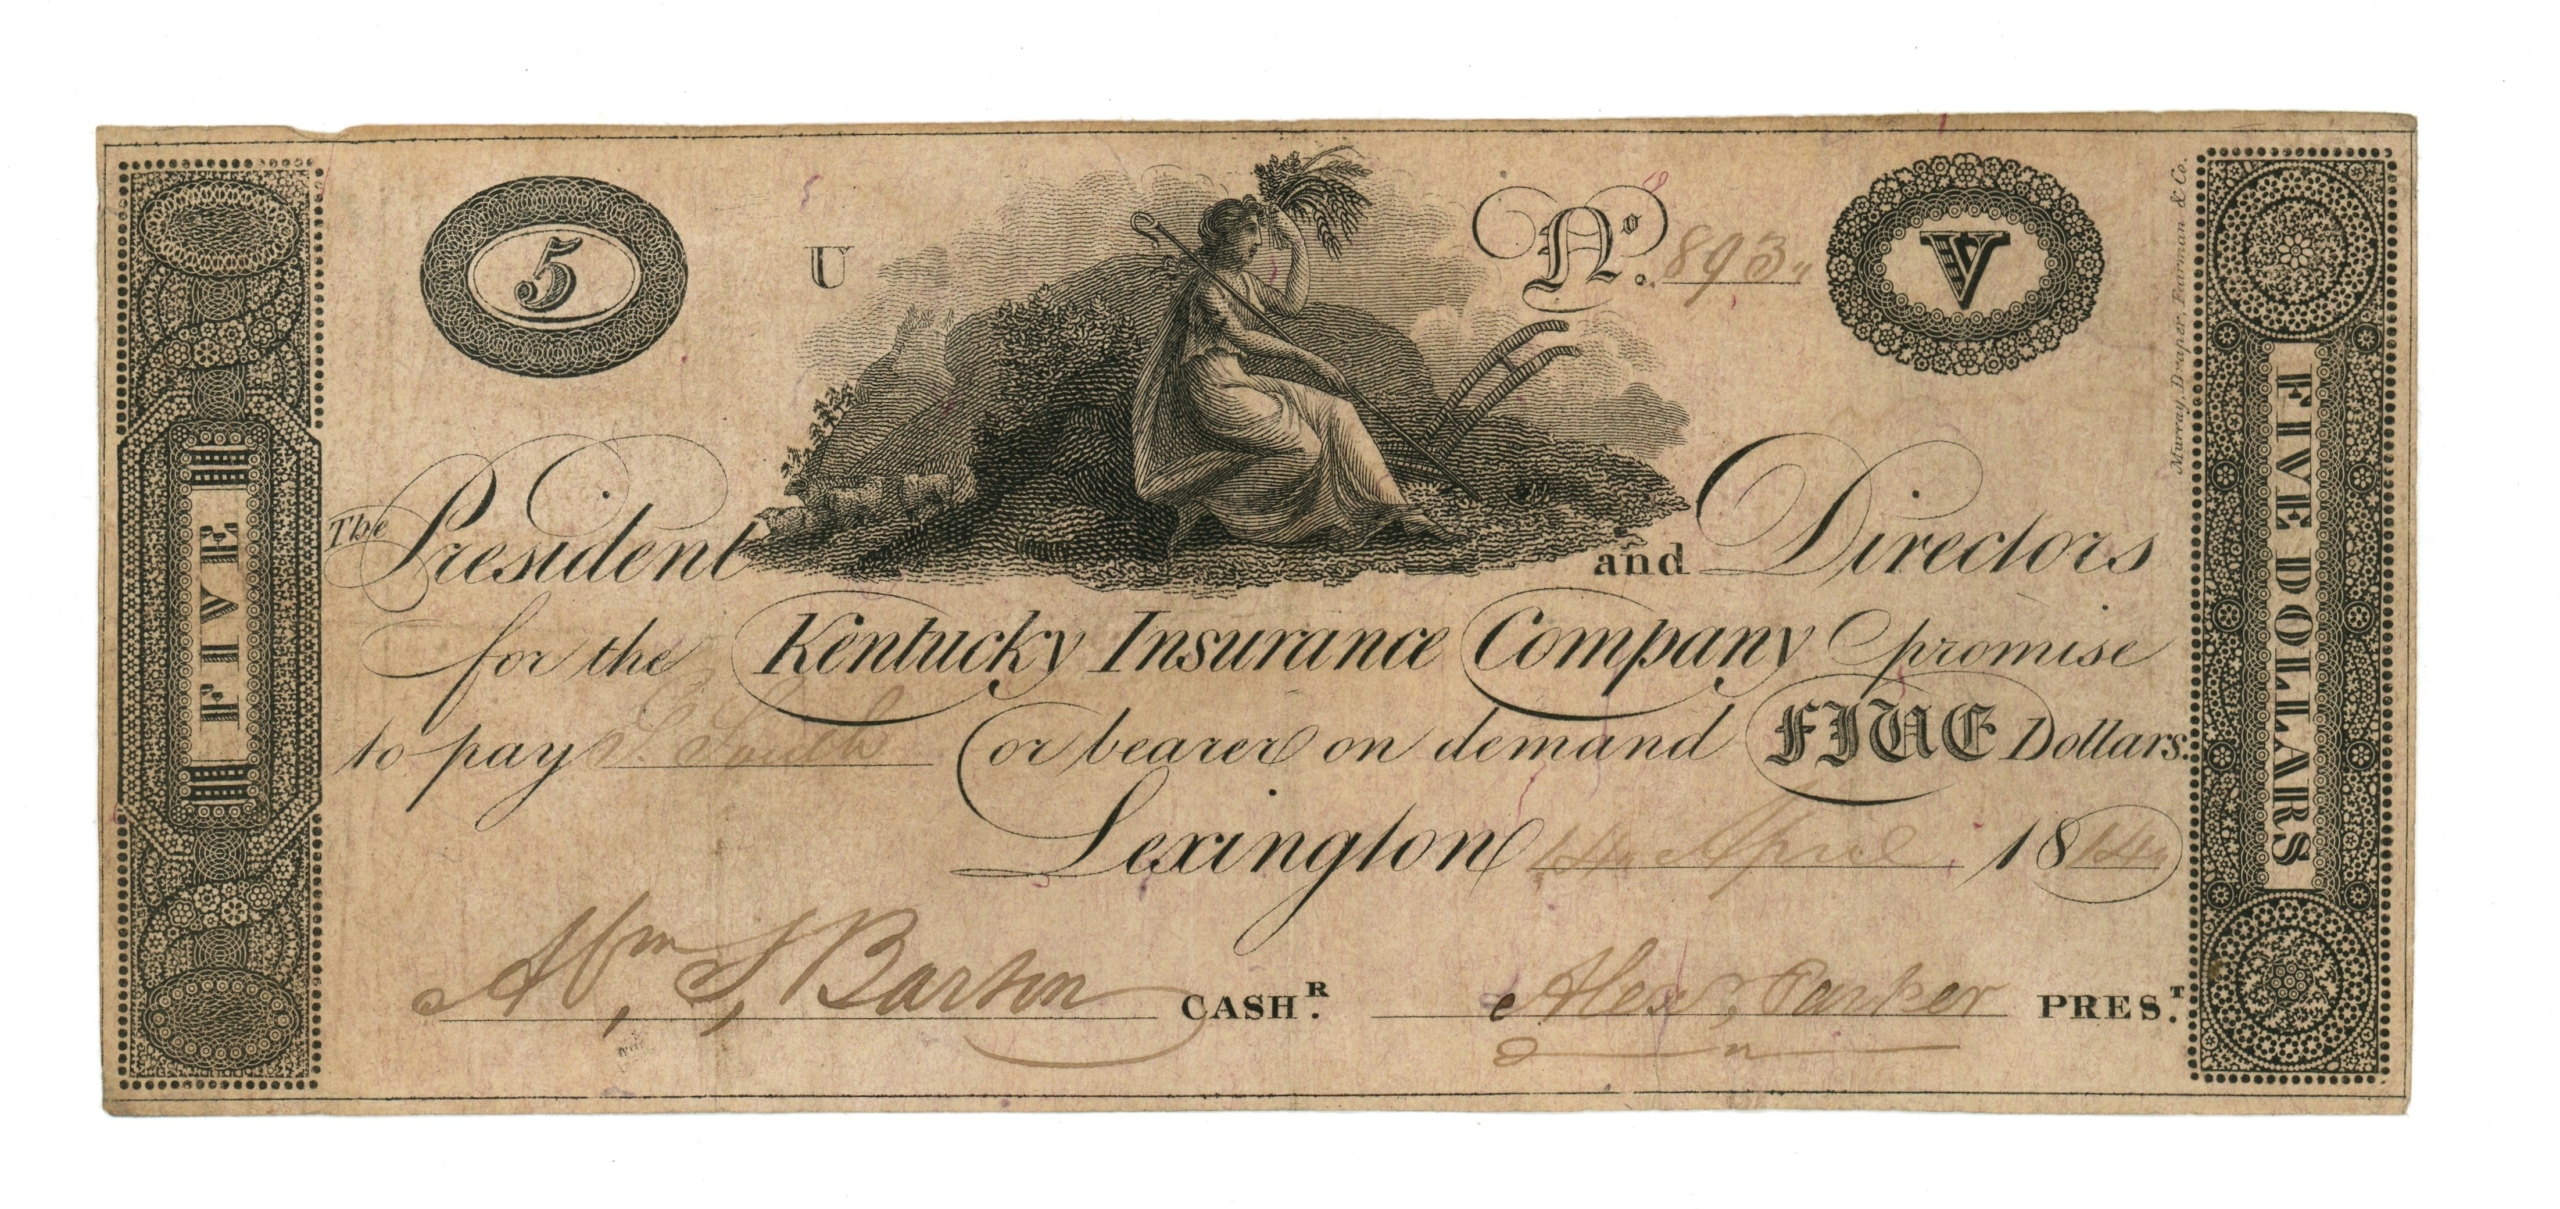 5
U
No. 893
V
Murray, Draper, Fairman & Co.
FIVE
FIVE DOLLARS
The President and Directors
for the Kentucky Insurance Company promise
to pay or bearer on demand FIVE Dollars.
Lexington 14 April 1814
Wm. S. Barton CASHR. Alexr. Parker PREST.